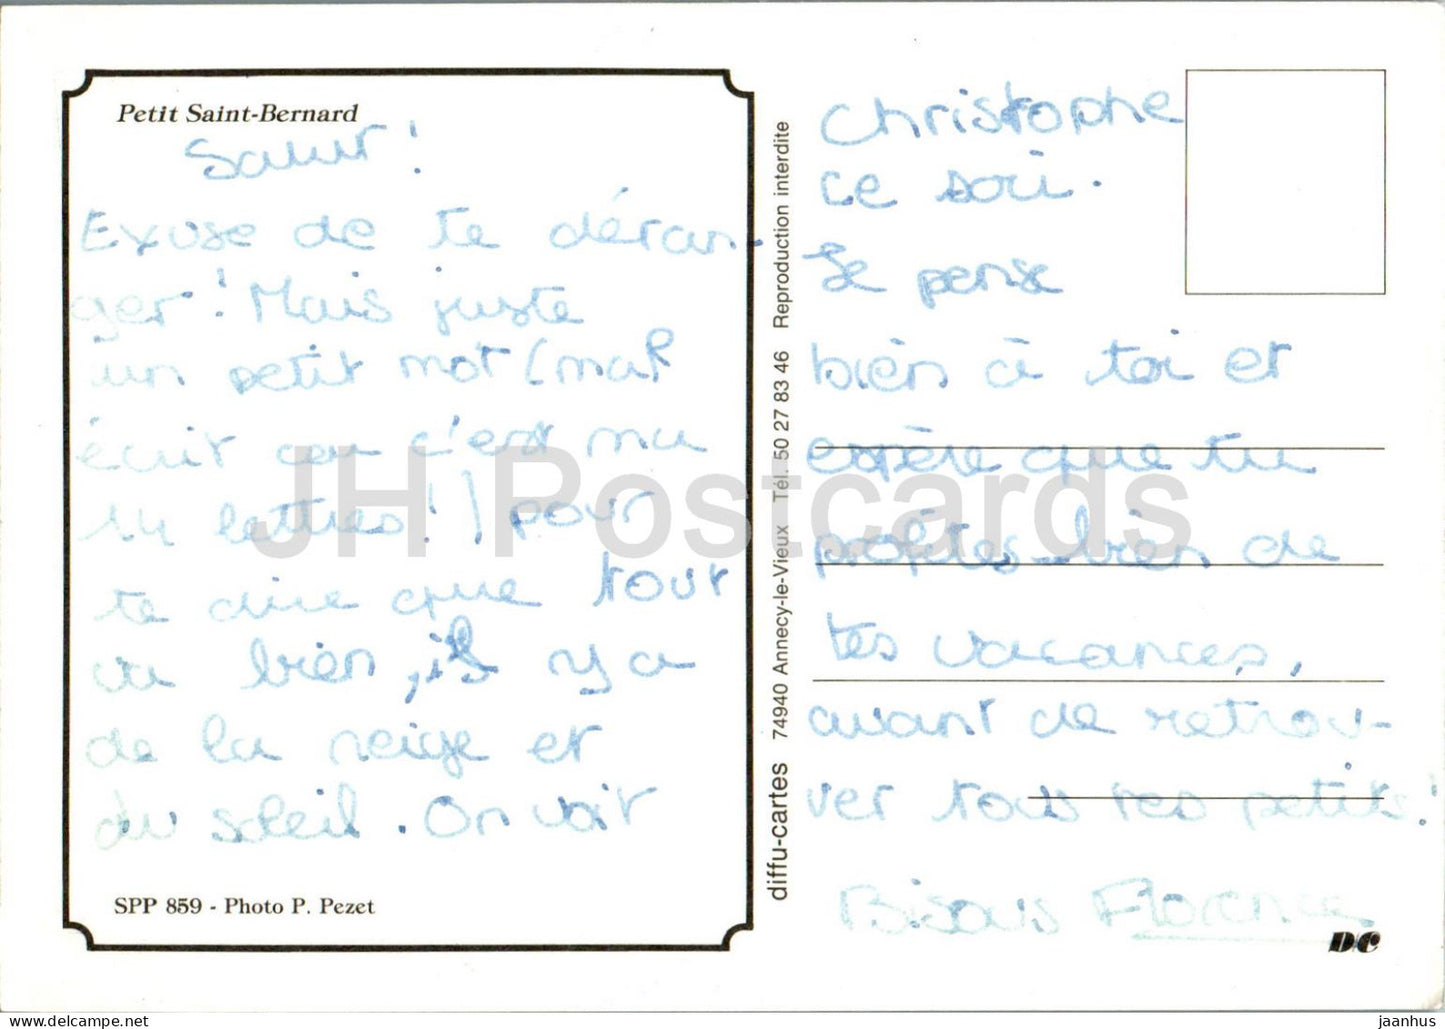 Petit Saint-Bernard
Salut !
Excuse de te déran-
ger ! Mais juste
un petit mot (mal
écrit car c'est ma
14 lettres ! ) pour
te dire que tout
va bien, il y a
de la neige et
du soleil. On voit
SPP 859 - Photo P. Pezet
diffu-cartes 74940 Annecy-le-Vieux Tél. 50 27 83 46 Reproduction interdite
Christophe
ce soir.
Je pense
bien à toi et
espère que tu
profites bien de
tes vacances,
avant de retrou-
ver tous tes petits !
Bisous Florence
D/C
JH Postcards
https://www.jhpostcards.com
jaanhus